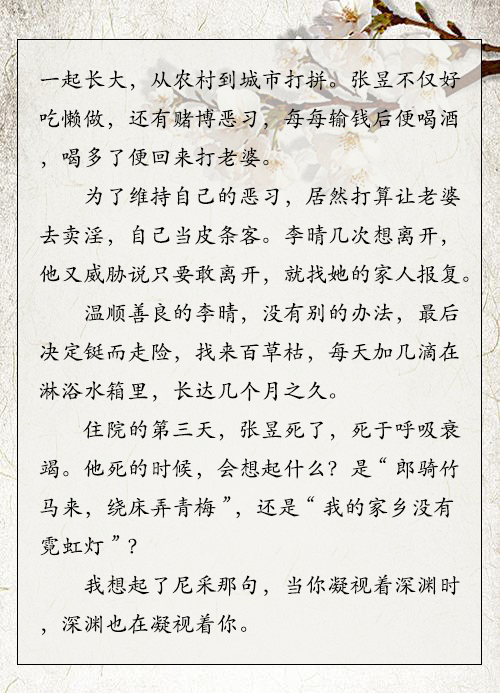 一起长大，从农村到城市打拼。张昱不仅好
吃懒做，还有赌博恶习，每每输钱后便喝酒
，喝多了便回来打老婆。
为了维持自己的恶习，居然打算让老婆
去卖淫，自己当皮条客。李晴几次想离开，
他又威胁说只要敢离开，就找她的家人报复。
温顺善良的李晴，没有别的办法，最后
决定铤而走险，找来百草枯，每天加几滴在
淋浴水箱里，长达几个月之久。
住院的第三天，张昱死了，死于呼吸衰
竭。他死的时候，会想起什么？是“郎骑竹
马来，绕床弄青梅”，还是“我的家乡没有
霓虹灯”？
我想起了尼采那句，当你凝视着深渊时
，深渊也在凝视着你。